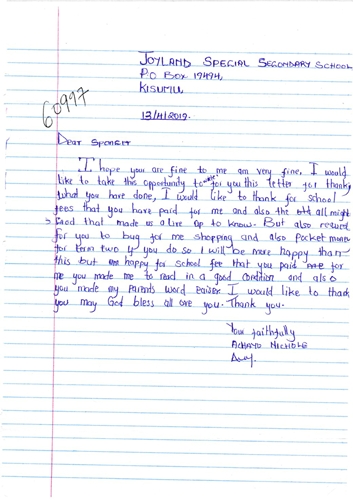 JOYLAND SPECIAL SECONDARY SCHOOL
P.O BOX 19494,
KISUMU,
60997
13/4/2019.
Dear Sponser
I hope you are fine to me am very fine. I would
like to take this opportunity to for you this letter for thanks
what you have done, I would like to thank for school
fees that you have paid for me and also the all might
God that made us alive up to know. But also
for you to bug for me shopping and also pocket money
for term two if you do so I will be more happy than
this but happy for school fee that you paid for
me you made me to read in a good condition and also
you made my parents word I would like to thank
you may God bless all are you. Thank you.
Your faithfully
ACHAYO NICHOLE